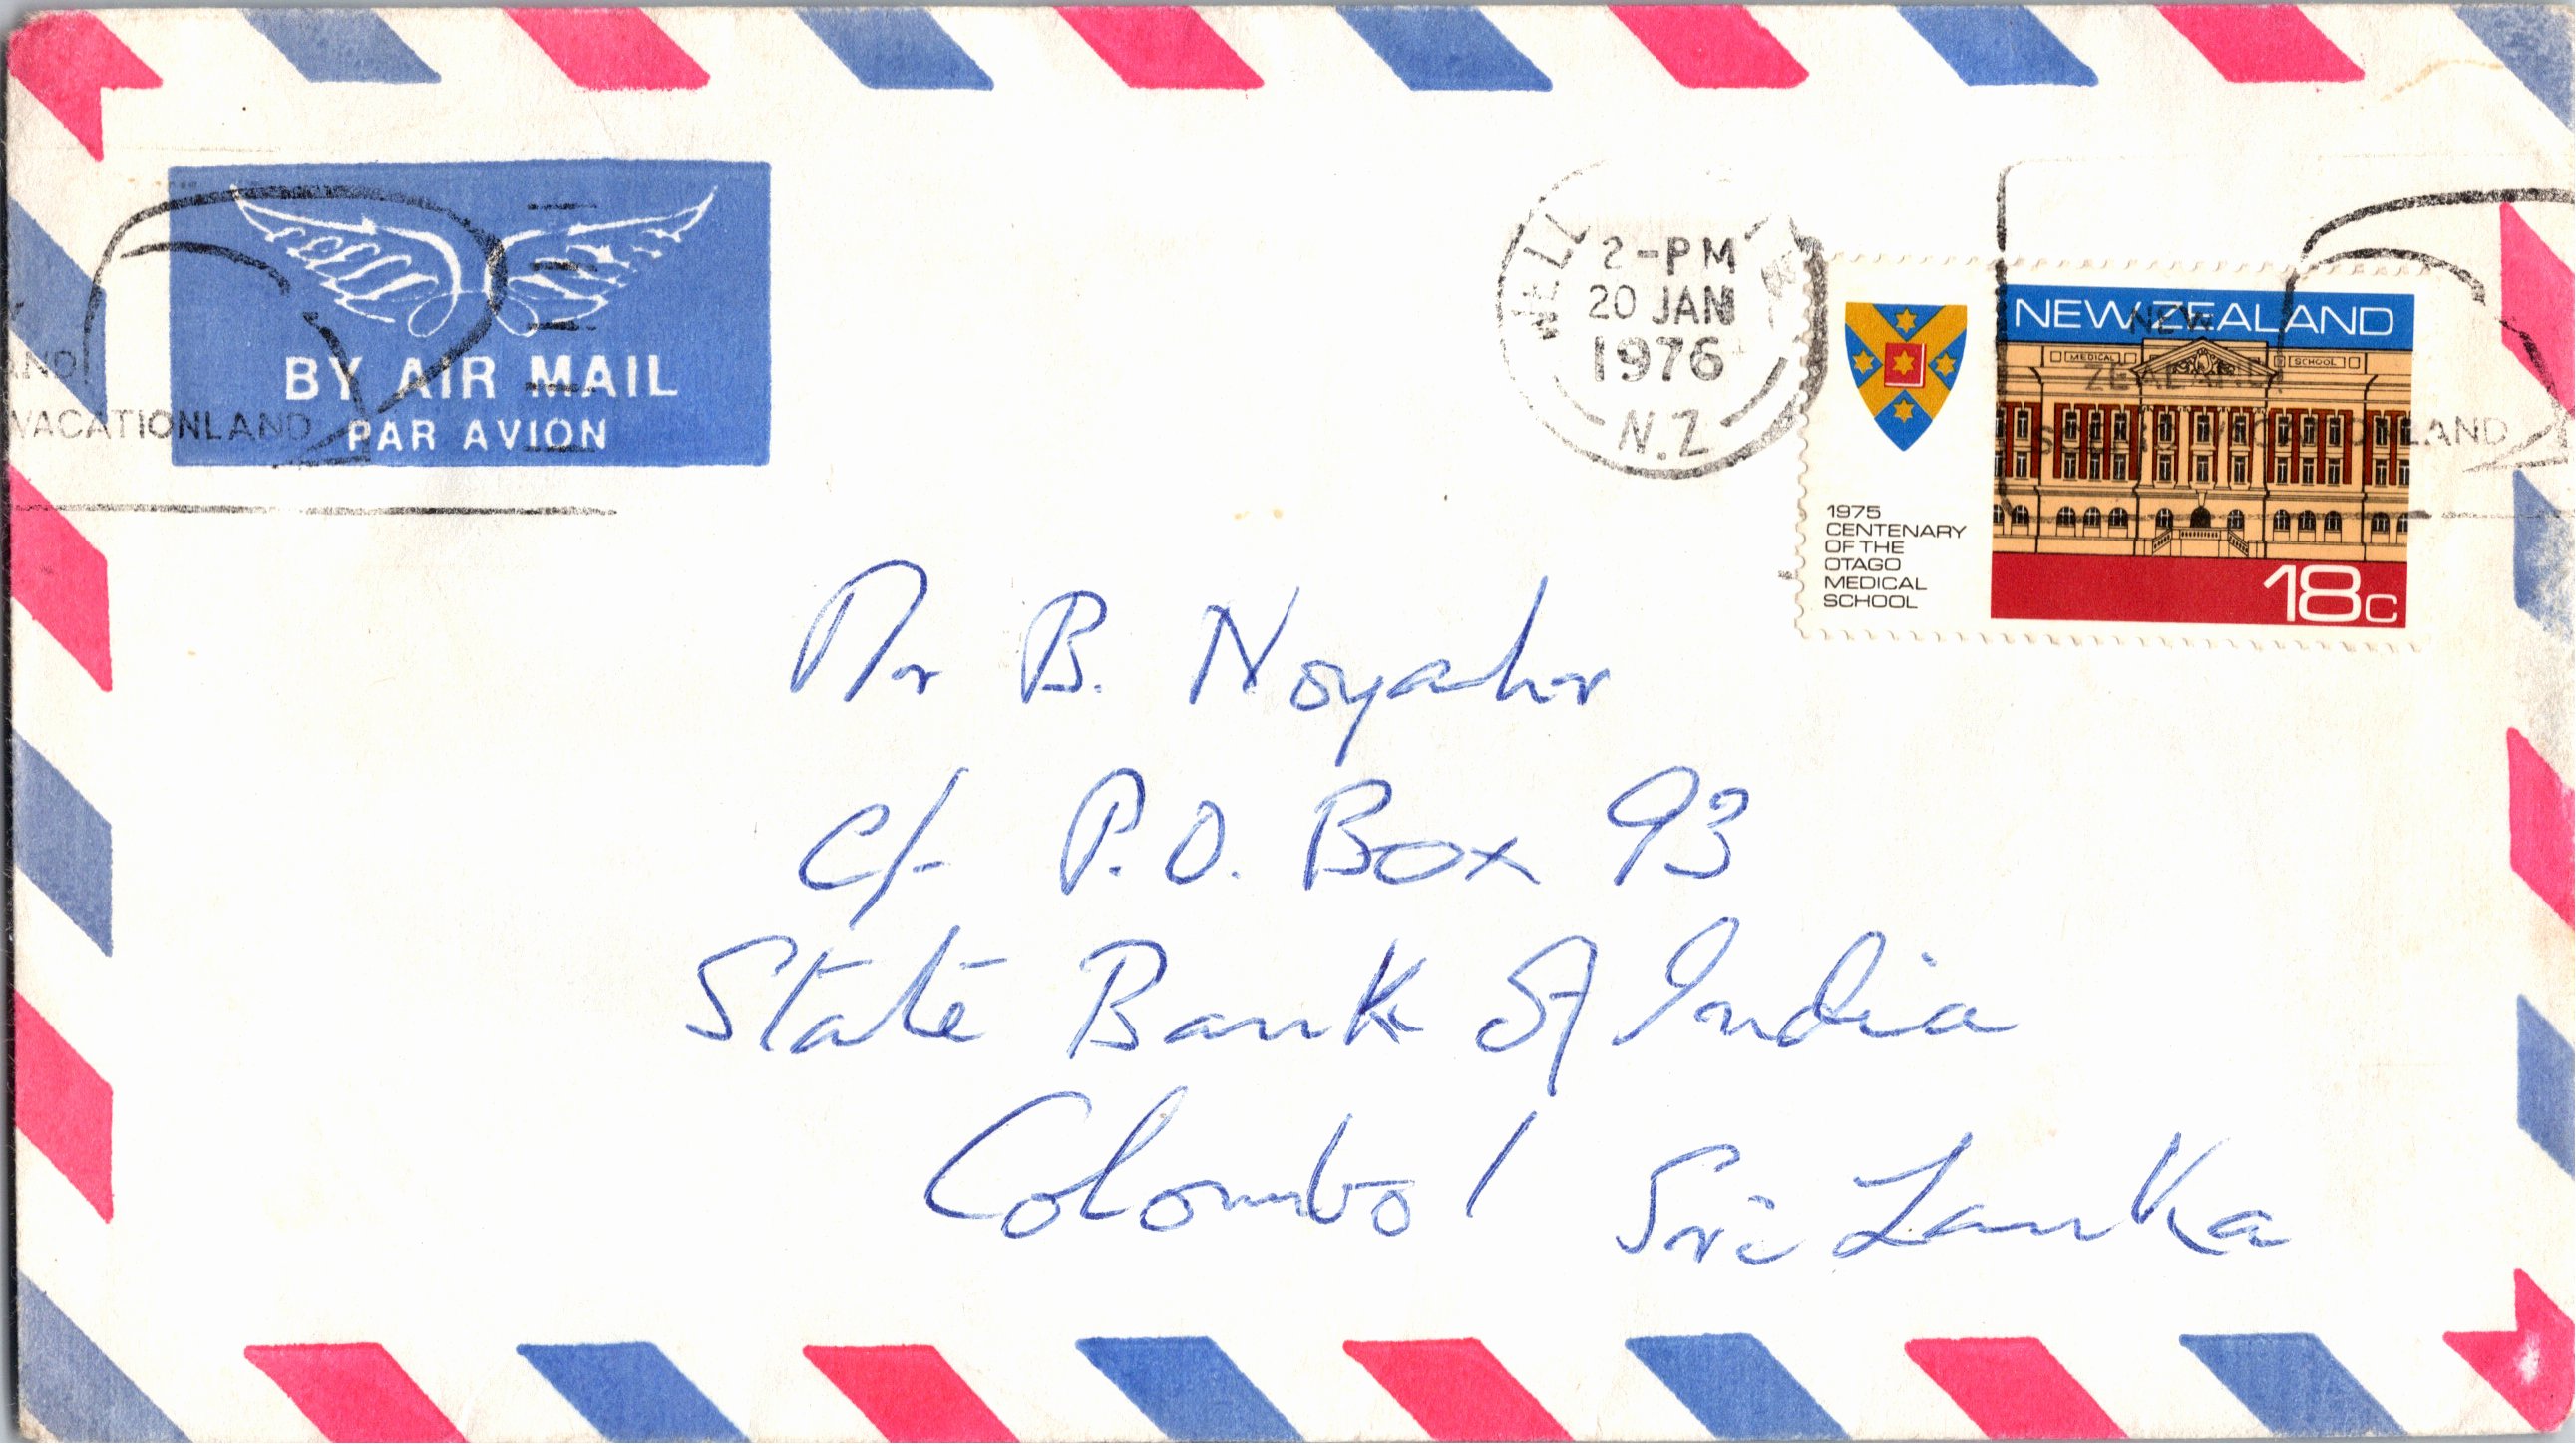 BY AIR MAIL
PAR AVION
AND!
VACATIONLAND
2-PM
20 JAN
1976
N.Z
NEW ZEALAND
MEDICAL SCHOOL
NEW
ZEALAND
VACATIONLAND
1975
CENTENARY
OF THE
OTAGO
MEDICAL
SCHOOL
18c
Mr B. Noyahr
c/- P.O. Box 93
State Bank of India
Colombo 1 Sri Lanka